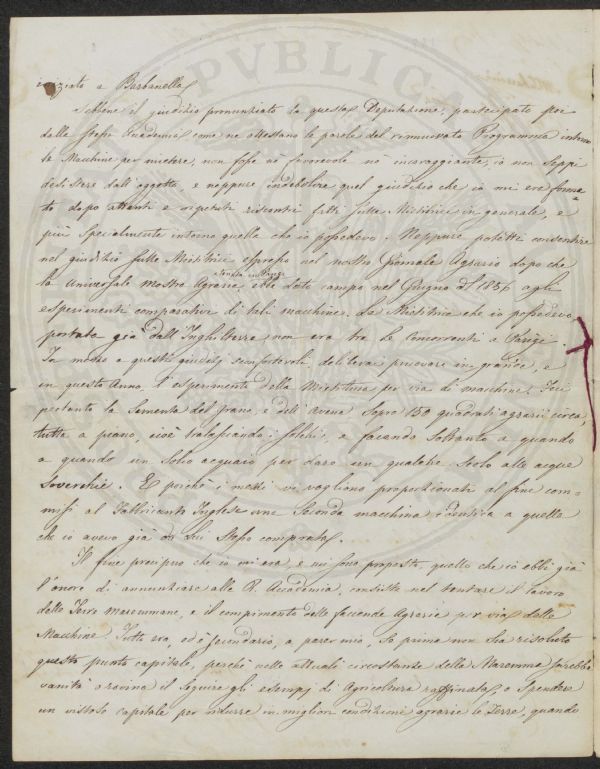 iniziato a Barbanella
Sebbene il giudizio pronunziato da questa Deputazione, partecipato poi
dalla stessa Accademia come ne attestano le parole del rinnuovato Programma intorno
le Macchine per mietere, non fosse nè favorevole nè incoraggiante, io non seppi
desistere dall'oggetto, e neppure indebolire quel giudizio che io mi era forma=
to dopo attenti e ripetuti riscontri fatti sulle Mietitrici in generale, e
più specialmente intorno quella che io possedevo. Neppure potetti consentire
nel giudizio sulle Mietitrici espresso nel nostro Giornale Agrario dopo che
la universale mostra Agraria tenuta in Parigi ebbe dato campo nel Giugno del 1856 agli
esperimenti comparativi di tali macchine. La Mietitrice che io possedevo
portata già dall'Inghilterra, non era tra le concorrenti a Parigi.
In mezzo a questi giudizj sconfortevoli, deliberai provare in grande, e
in questo Anno l'esperimento della Mietitura per via di macchine. Feci
pertanto la Sementa del Grano, e dell'Avena sopra 150 quadrati agrarii circa,
tutta a piano, cioè tralasciando i solchi, e facendo soltanto a quando
a quando un solco acquaio per dare un qualche scolo alle acque
soverchie. E poichè i mezzi vi vogliono proporzionati al fine com=
misi al Fabbricante Inglese una Seconda macchina identica a quella
che io avevo già da lui stesso comprata.
Il fine precipuo che io mi era, e mi sono proposto, quello che io ebbi già
l'onore di annunziare alla R. Accademia, consiste nel tentare il lavoro
delle Terre Maremmane, e il compimento delle faccende Agrarie per via delle
Macchine. Tutt'era, ed è secondario, a parer mio, se prima non sia risoluto
questo punto capitale, perchè nelle attuali circostanze della Maremma sarebbe
vanità o rovina il seguire gli esempj di Agricoltura raffinata, o spendere
un vistoso capitale per ridurre in migliori condizioni agrarie le Terre, quando